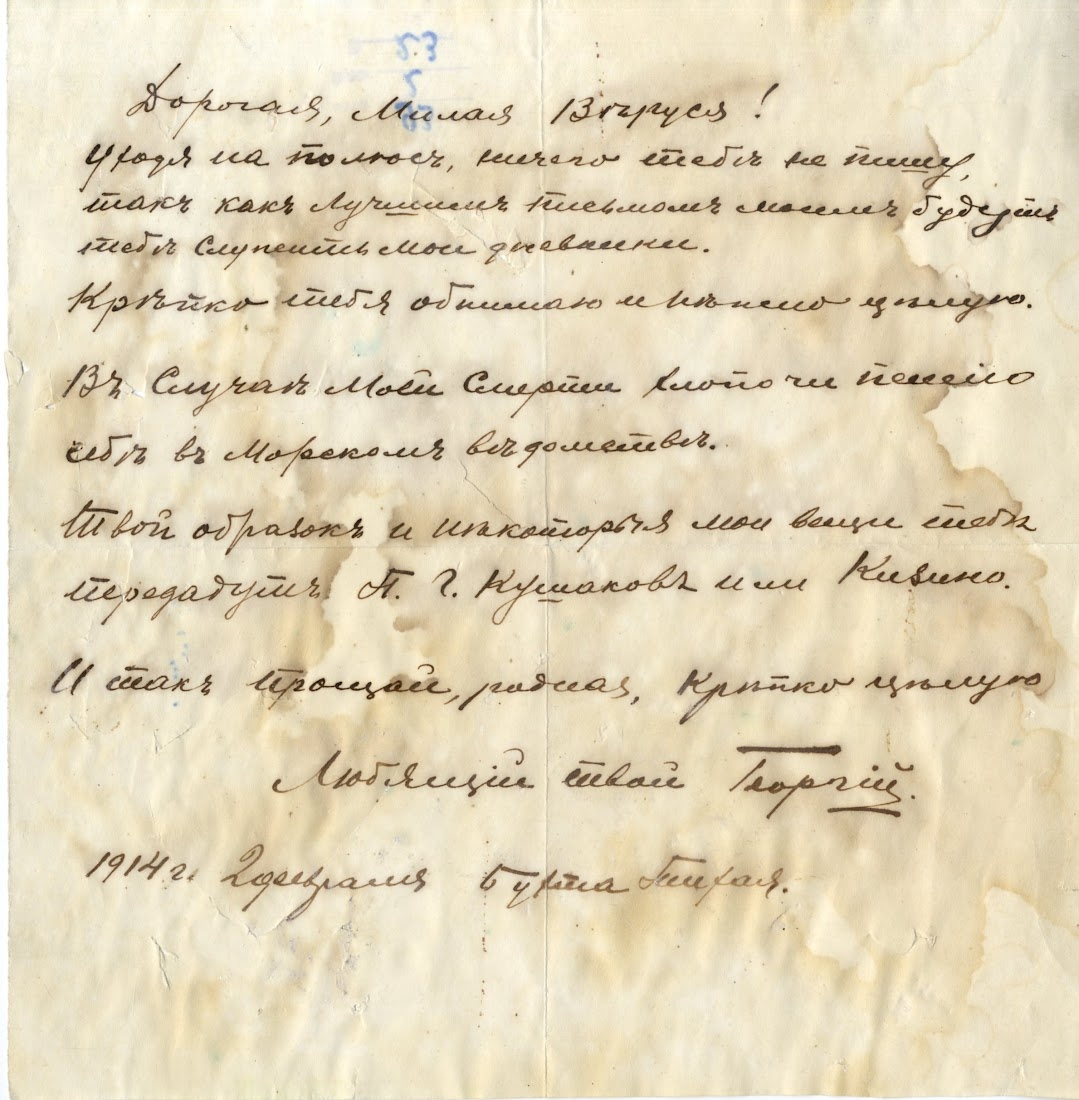 23
Дорогая, Милая Вѣруся!
Уходя на полюсъ, ничего тебѣ не пишу,
такъ какъ Лучшимъ письмомъ моимъ будутъ
тебѣ Служить Мои дневники.
Крѣпко тебя обнимаю и нѣжно цѣлую.
Въ Случаѣ Моей Смерти хлопочи пенсію
себѣ въ Морскомъ вѣдомствѣ.
Твой образокъ и нѣкоторыя мои вещи тебѣ
передадутъ П. Г. Кушаковъ или Кизино.
И такъ прощай, родная, Крѣпко цѣлую
Любящій твой Георгій.
1914 г. 2 февраля Бухта Тихая.